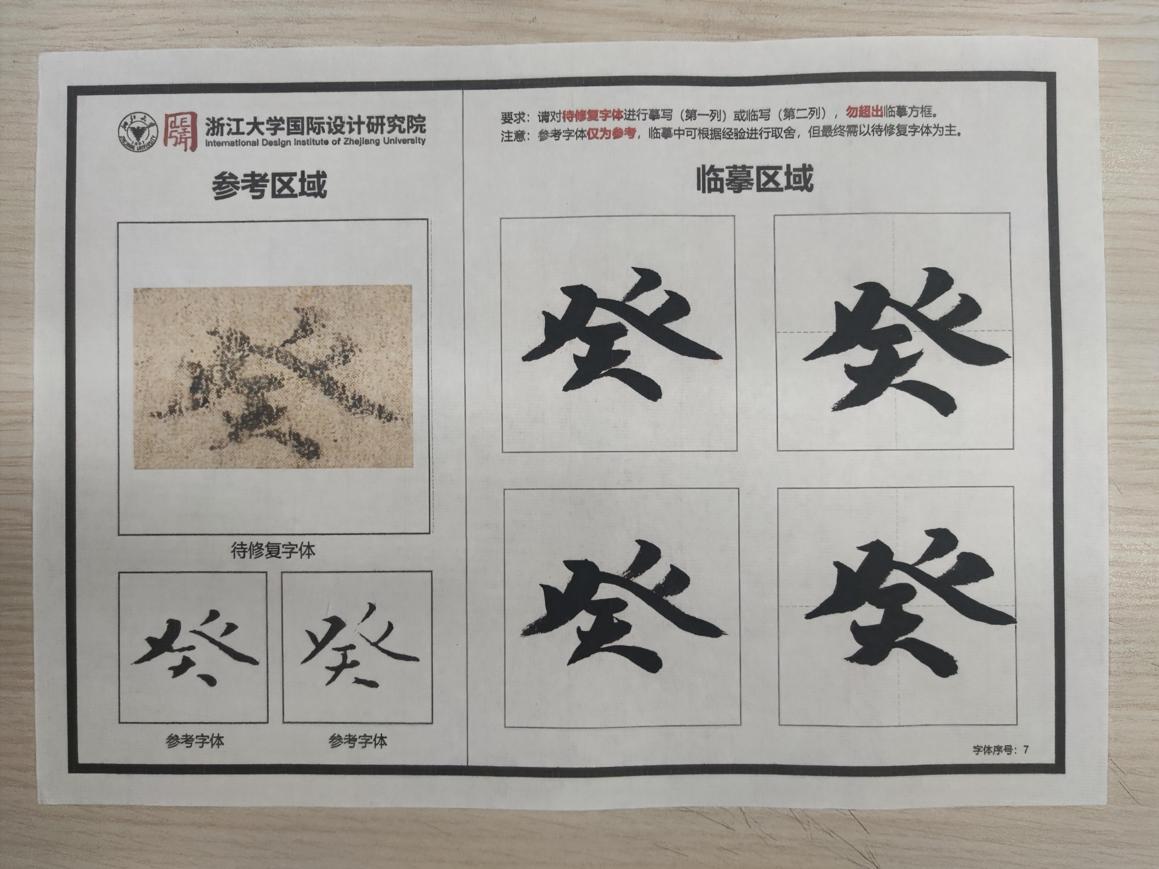 浙江大学国际设计研究院
International Design Institute of Zhejiang University
参考区域
待修复字体
癸
癸
癸
参考字体
参考字体
要求：请对待修复字体进行摹写（第一列）或临写（第二列），勿超出临摹方框。
注意：参考字体仅为参考，临摹中可根据经验进行取舍，但最终需以待修复字体为主。
临摹区域
癸
癸
癸
癸
字体序号：7